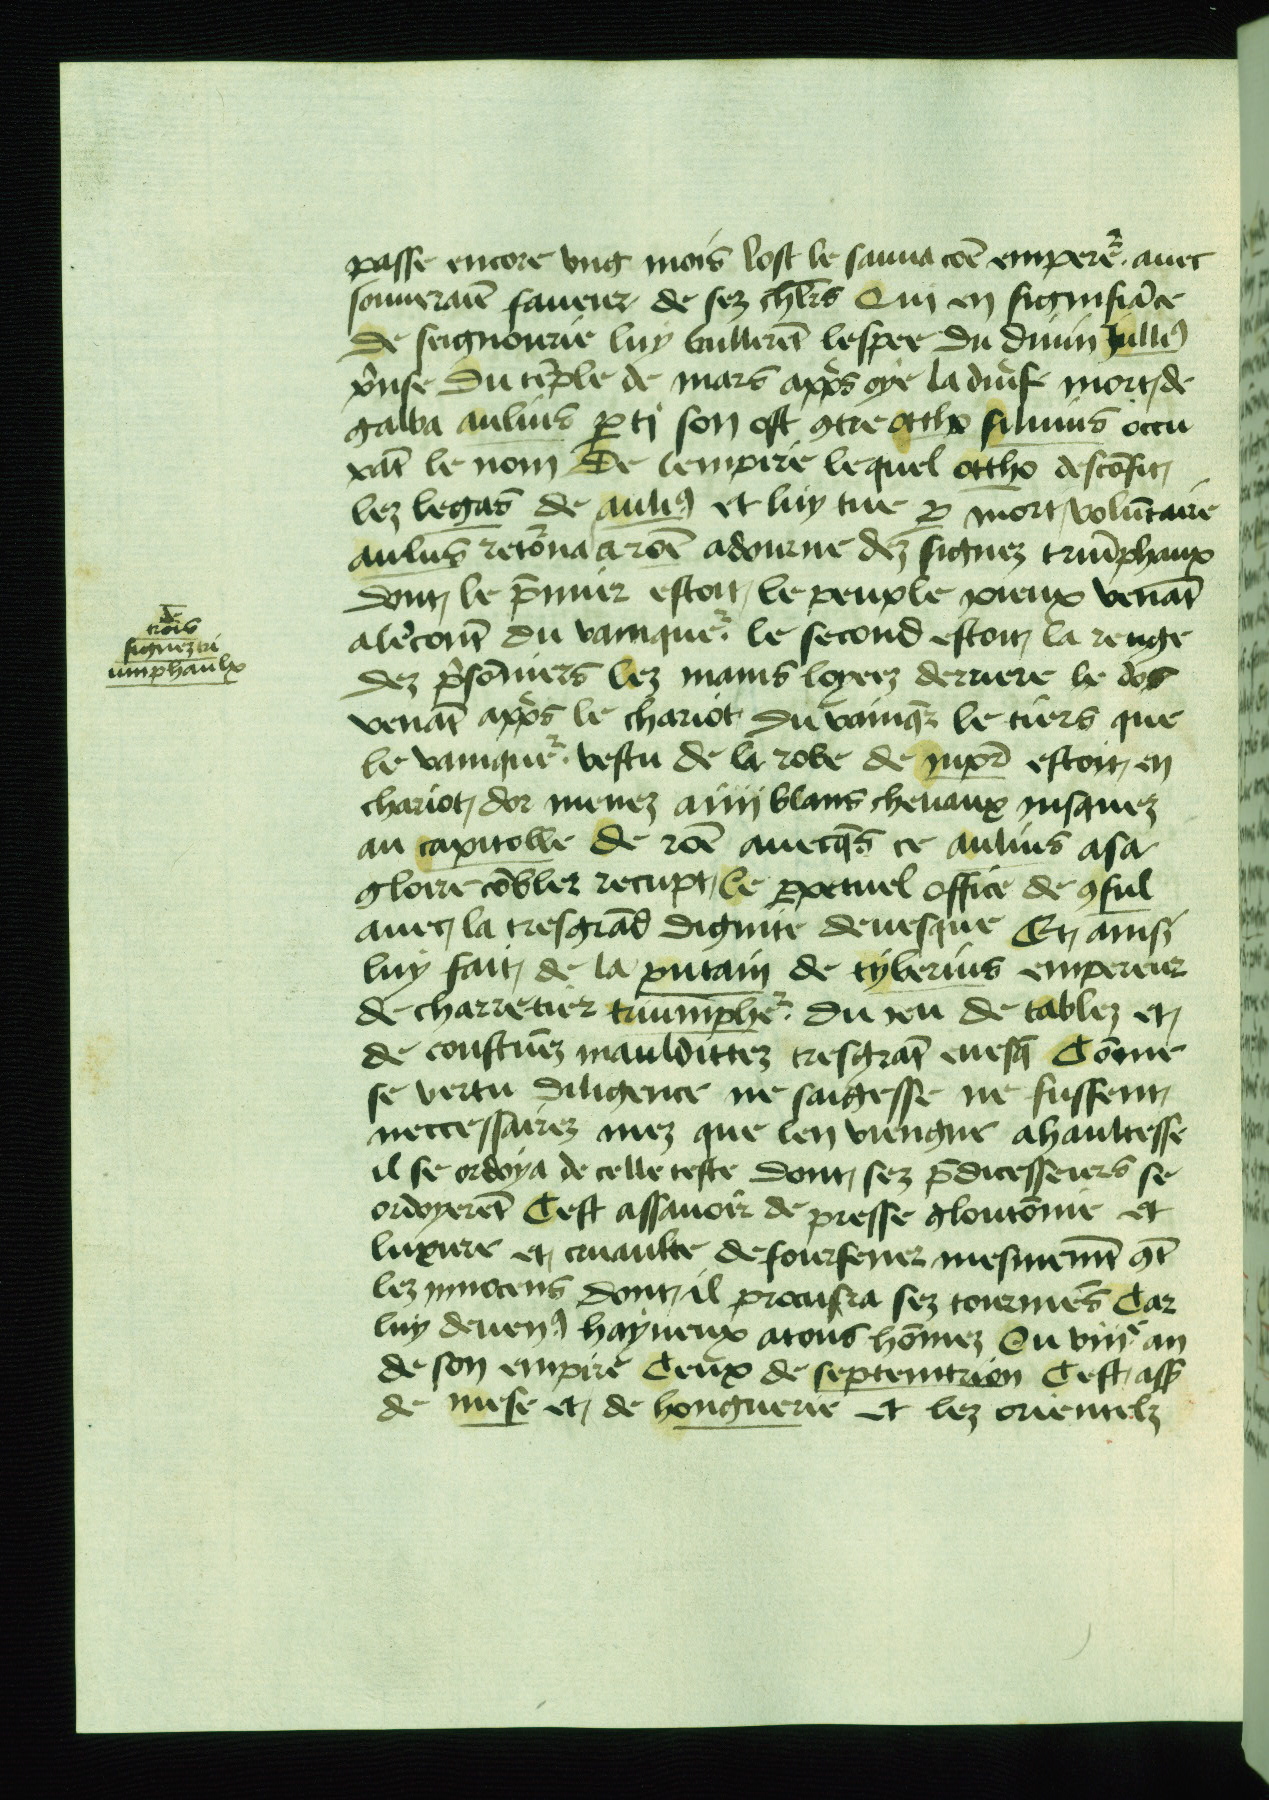 passe encore ung mois lost le sauua cōe emperēr. auec
souueraiē faueur de sez chl̄rs Qui en signifiāce
De seignourie luy baillerēt lespee du diuin Julliꝰ
p̄nse Du tēple de mars app̄s oye la diuise mort de
galba aulius p̱ti son ost ꝯtre ottho siluius occu
pāt le nom De lempire lequel ottho descōfit
lez legas de auliꝰ et luy tue p̱ mort volūtaire
aulius retōrna a rōe adourne dez signez triūphaux
Dont le p̄mier estoit le peuple pieux venāt
alēcontr̄ du vainquer̄. le second estoit la renge
Dez p̄sōniers lez mains loyeez derriere le dos
venāt app̄s le chariot du vainqr̄ le tiers que
le vainquer̄. vestu de la robe de iupr̄ estoit en
chariot dor menez a iiii blans cheuaux iusquez
au capitolle de rōe auecqs̄ ce aulius a sa
gloire cōbler recupt le p̱petuel office de ꝯsul
auec la tresgrād dignite deuesque Et ainsi
luy fait de la putain de tyberius empereur
de charretier triumpher̄. du ieu de tablez et
de coustūez mauldittez tresgrāt euesq̄ Cōme
se vertu diligence ne saigesse ne fussent
neccessairez mez que len viengne a haultesse
il se ordoya de celle teste dont sez p̄dicesseurs se
ordoyerēt Cest assauoir de presse gloutōnie et
luxure et cruaulte de fourfener mesmemt̄ ꝯt̄
lez innocens dont il procusra sez tourmēs Car
luy deuenꝰ hayneux a tous hōmez Ou viiiͤ an
de son empire Ceux de septemtrion Cest ass̄
de mese et de honguerie et lez orientelz
de
trois
signez tri
umphaulx